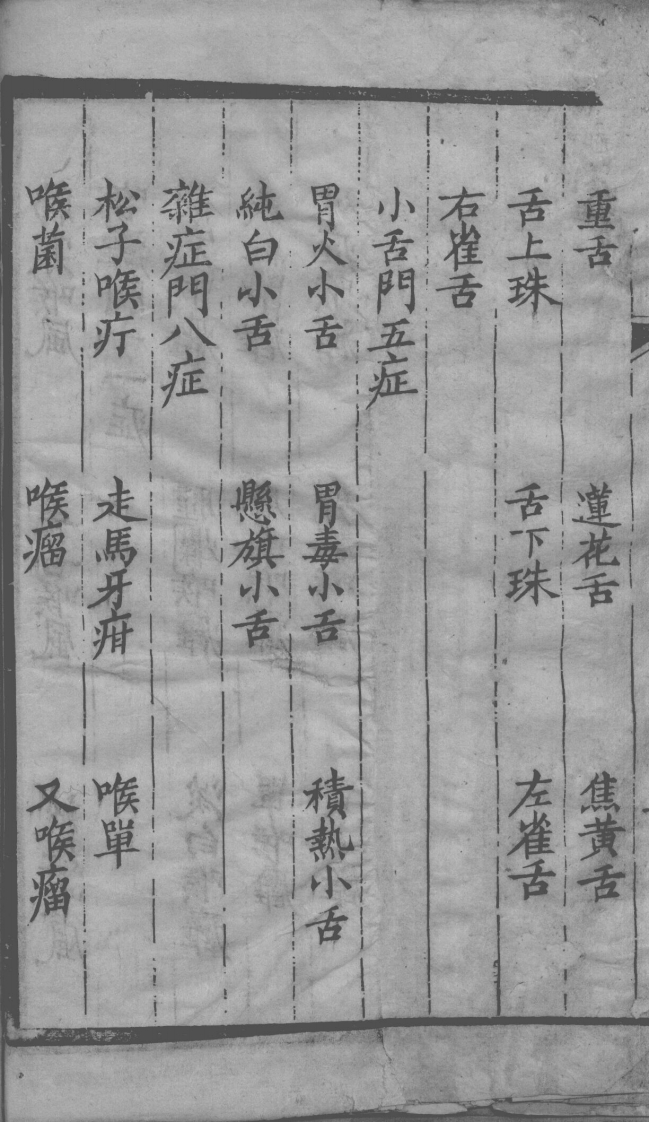 重舌　蓮花舌　焦黄舌
舌上珠　舌下珠　左雀舌
右雀舌
小舌門五症
胃火小舌　胃毒小舌　積熱小舌
純白小舌　懸旗小舌
雜症門八症
松子喉疔　走馬牙疳　喉單
喉菌　喉瘤　又喉瘤